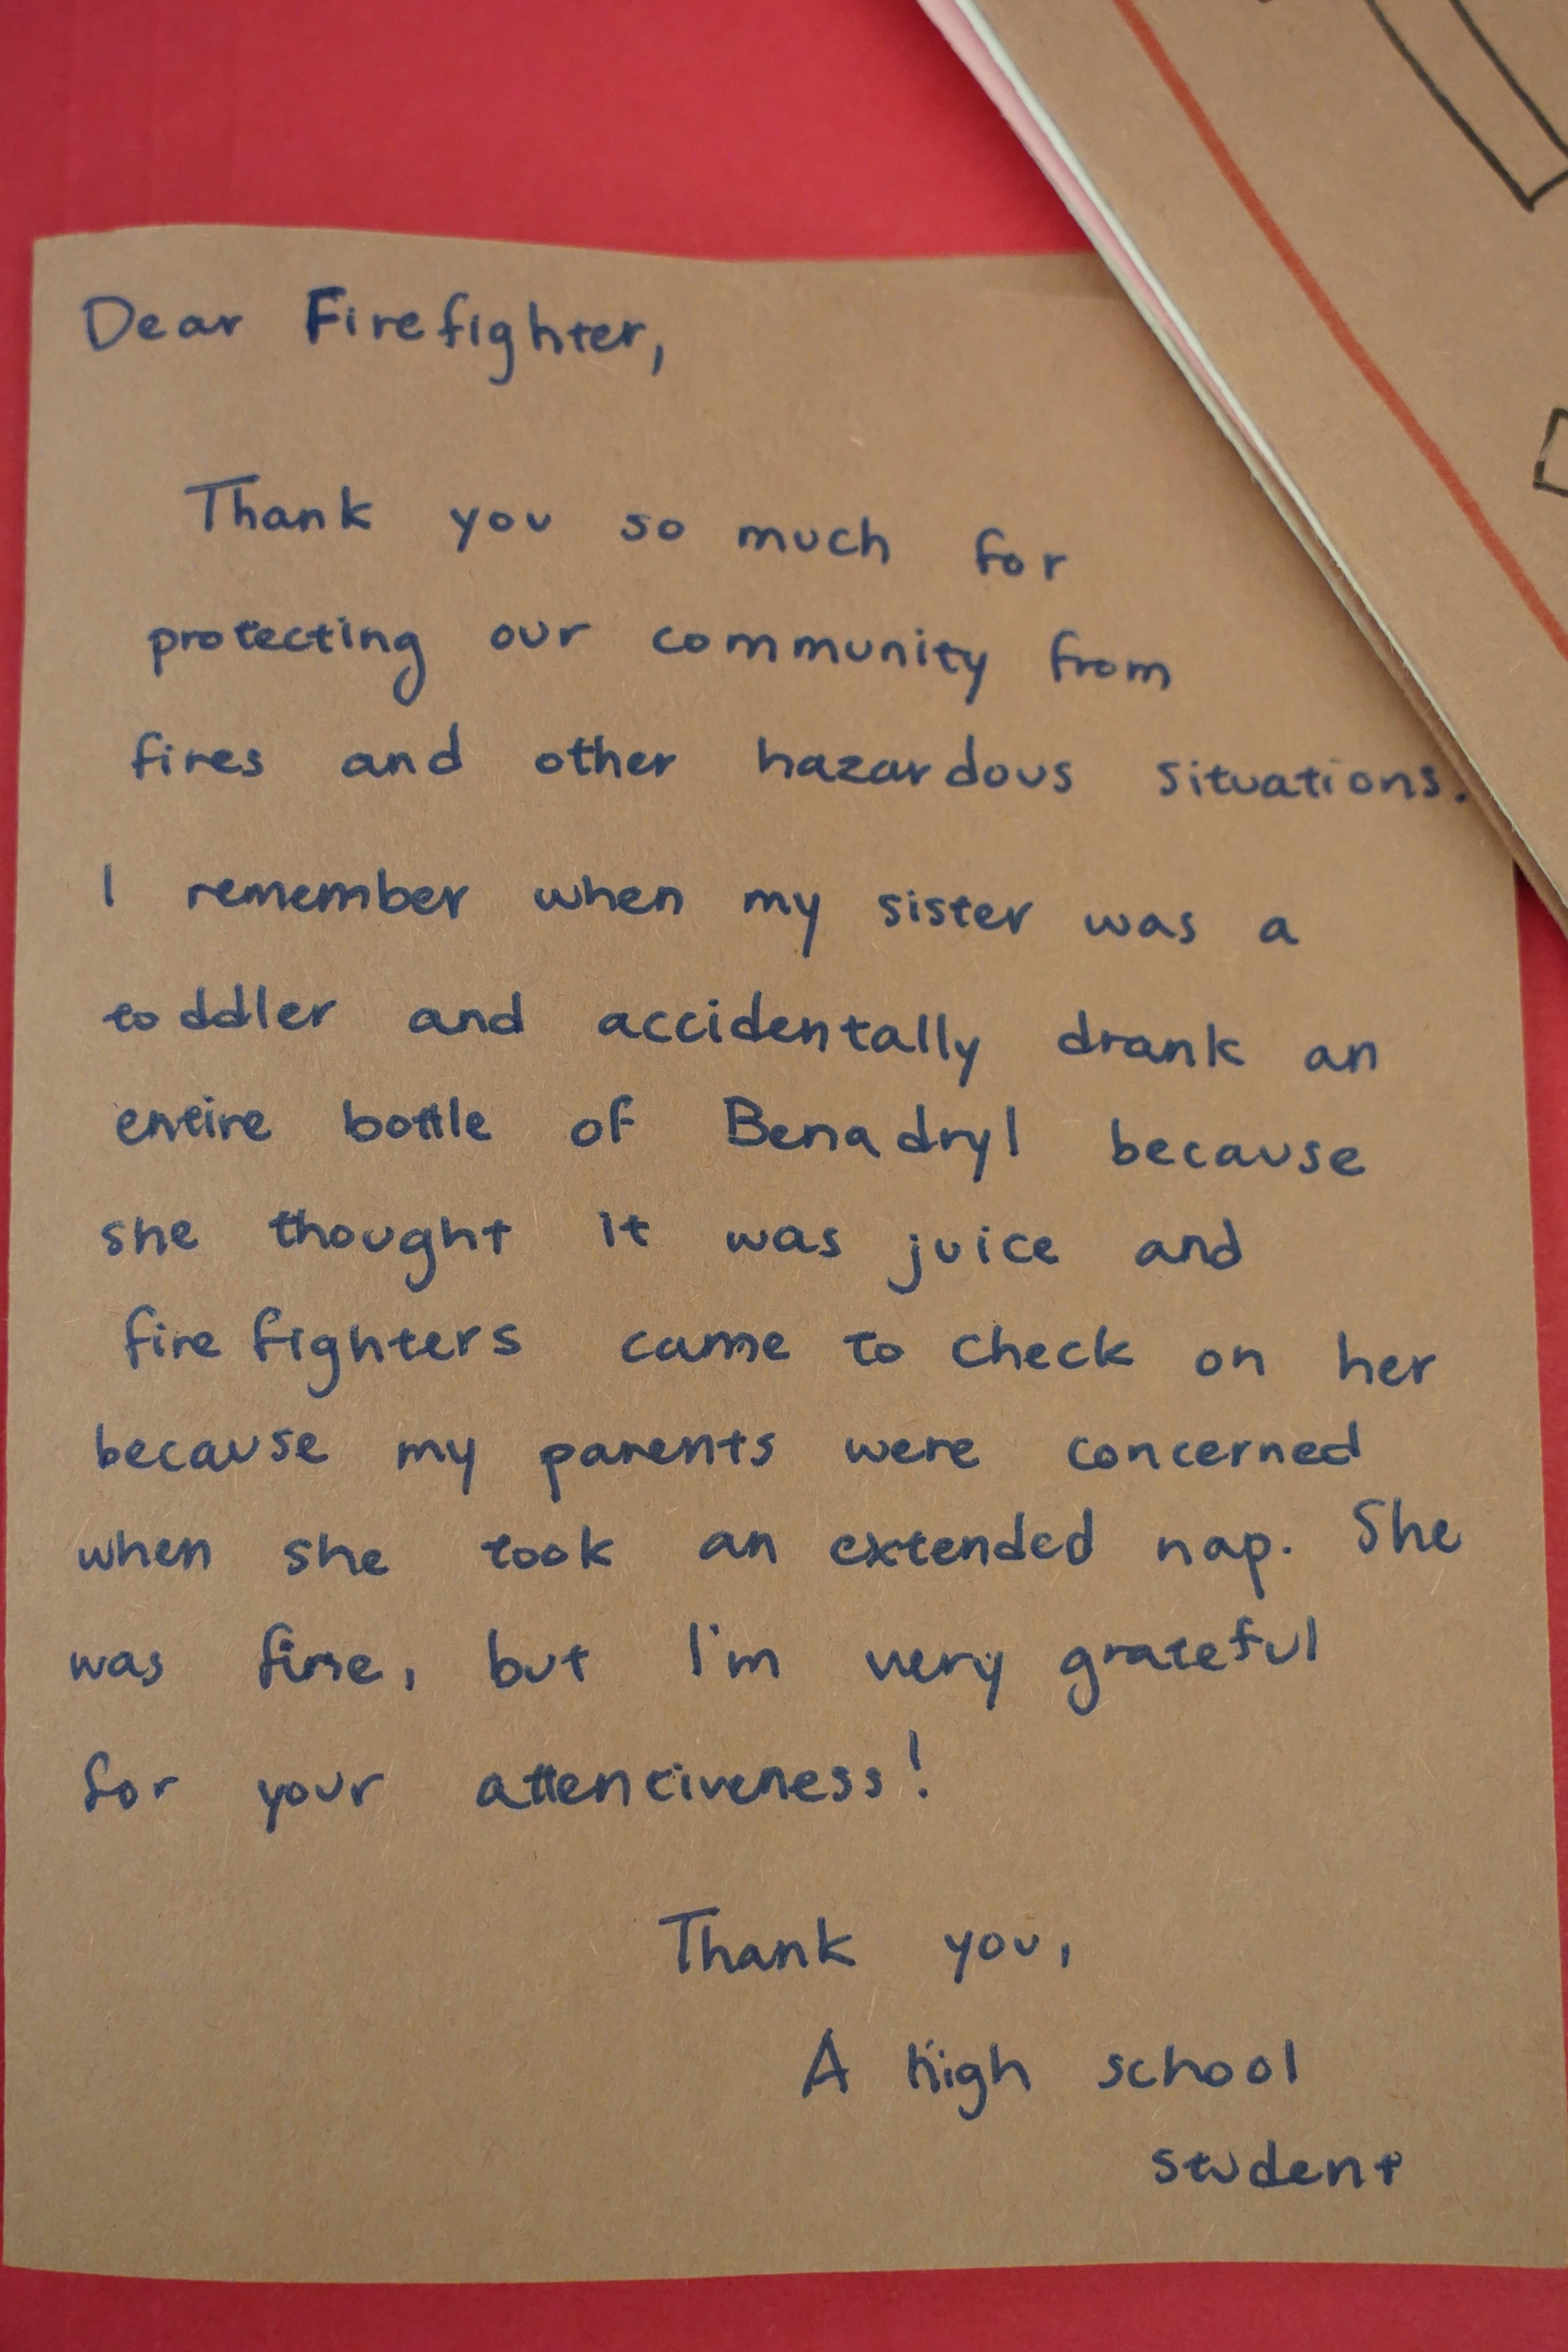 Dear Firefighter,
Thank you so much for
protecting our community from
fires and other hazardous situations.
I remember when my sister was a
toddler and accidentally drank an
entire bottle of Benadryl because
she thought it was juice and
firefighters came to check on her
because my parents were concerned
when she took an extended nap. She
was fine, but I'm very grateful
for your attentiveness!
Thank you,
A high school
student